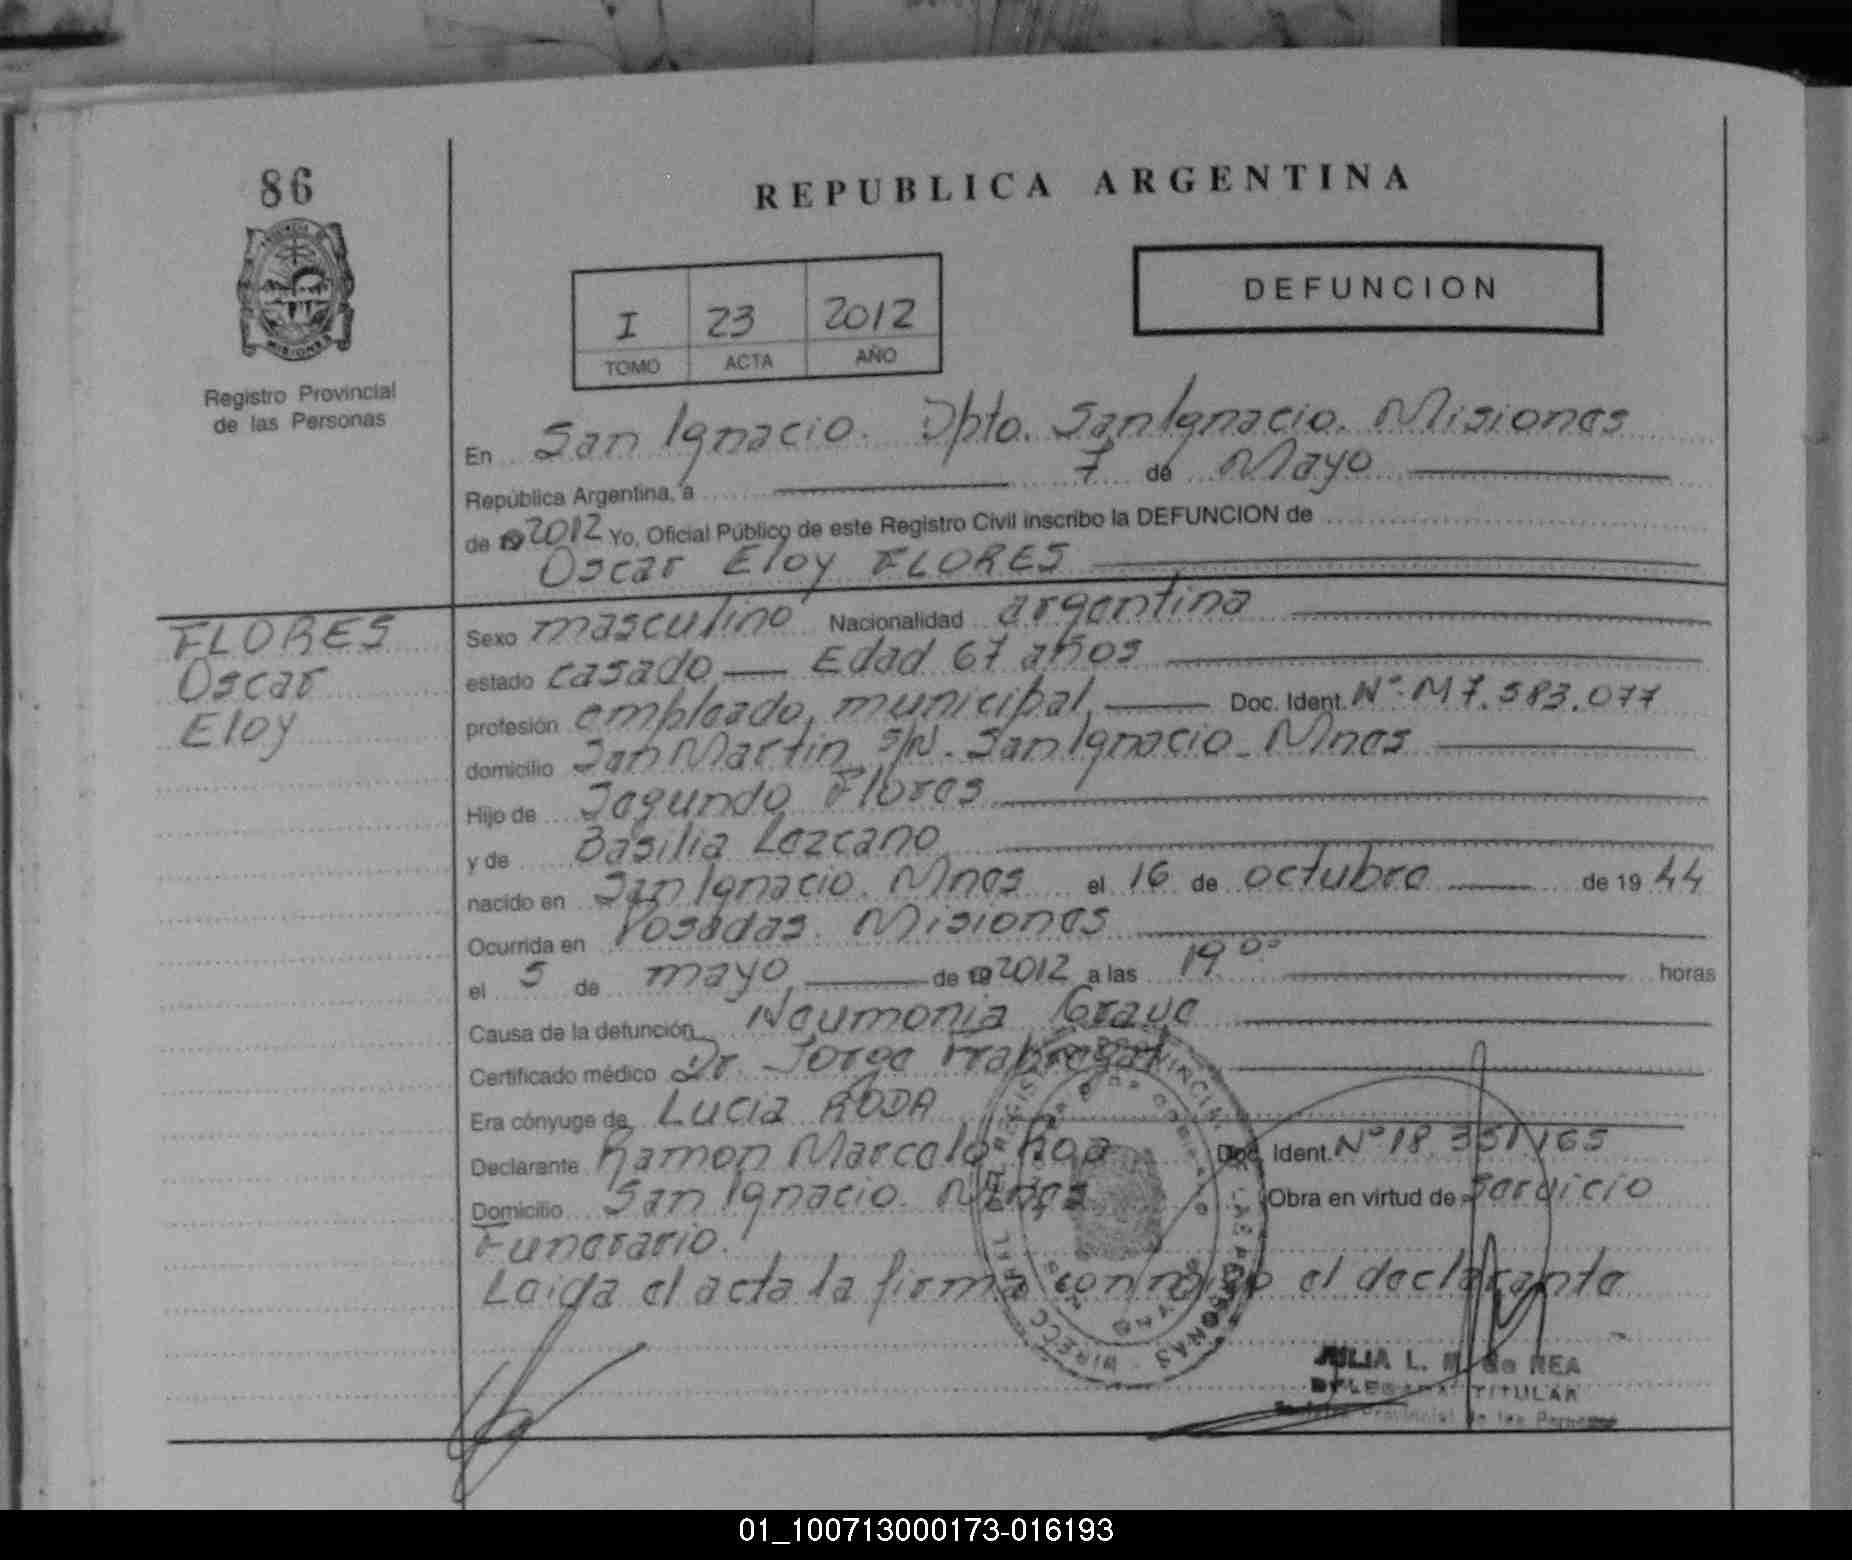 86
REPUBLICA ARGENTINA
DEFUNCION
I 23 2012
TOMO ACTA AÑO
Registro Provincial
de las Personas
En San Ignacio. Dpto. San Ignacio. Misiones
República Argentina, a 7 de Mayo
de 19 2012 Yo, Oficial Público de este Registro Civil inscribo la DEFUNCION de
Oscar Eloy FLORES
FLORES
Oscar
Eloy
Sexo masculino Nacionalidad argentina
estado casado Edad 67 años
profesión empleado municipal Doc. Ident. Nº M7.583.077
domicilio San Martin S/N. San Ignacio. Mnes
Hijo de Segundo Flores
y de Basilia Lezcano
nacido en San Ignacio. Mnes el 16 de octubre de 19 44
Ocurrida en Posadas. Misiones
el 5 de mayo de 19 2012 a las 19 00 horas
Causa de la defunción Neumonia Grave
Certificado médico Dr. Jorge
Era cónyuge de Lucia RODA
Declarante Ramon Marcelo Roa Doc. Ident. Nº 18.351.165
Domicilio San Ignacio. Mnes Obra en virtud de Servicio
Funerario.
Leida el acta la firma conmigo el declarante
JULIA L. de REA
DELEGADA TITULAR
Provincial de las Personas
01_100713000173-016193